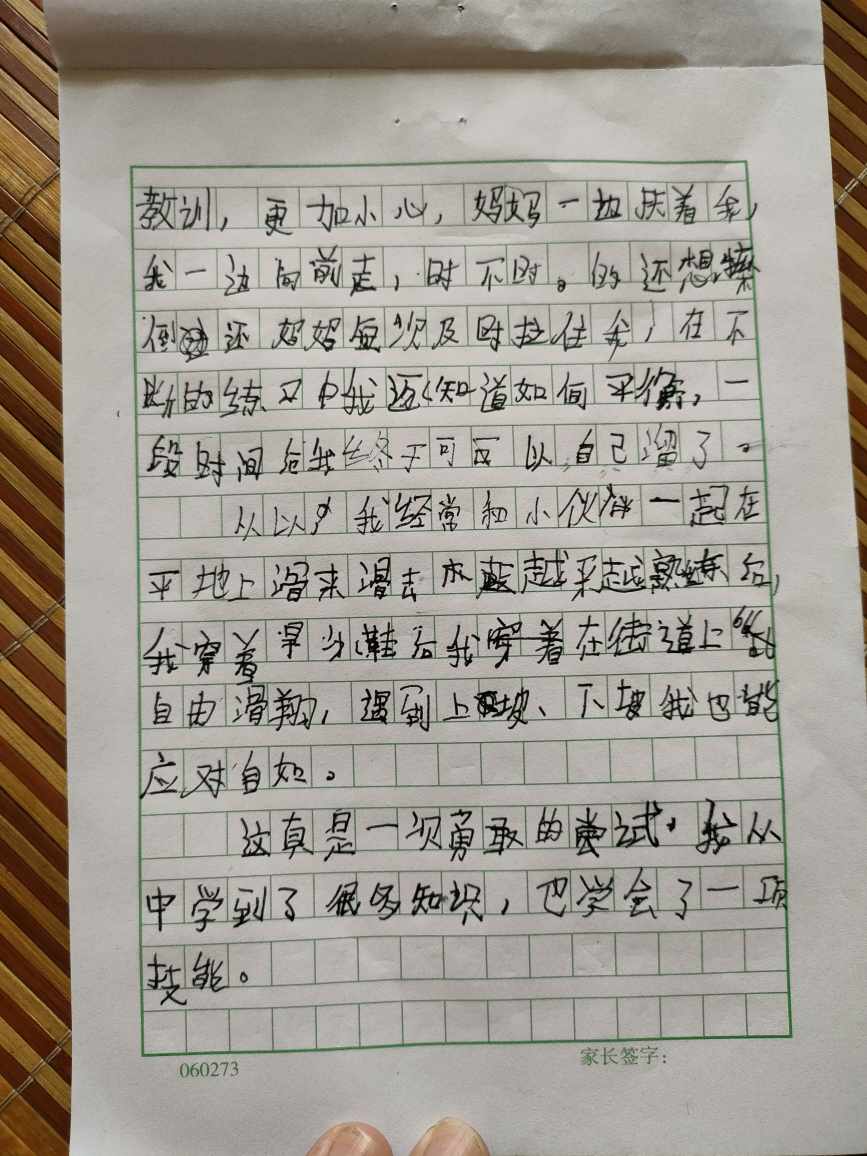 教训，更加小心，妈妈一边扶着我，
我一边向前走，时不时。的还想摔
倒还妈妈每次及时拉住我，在不
断的练习中我还知道如何平衡，一
段时间后我终于可以自己溜了。
从以我经常和小伙伴一起在
平地上滑来滑去越来越熟练后，
我穿着旱冰鞋后我穿着在街道上
自由滑翔，遇到上坡、下坡我也能
应对自如。
这真是一次勇敢的尝试，我从
中学到了很多知识，也学会了一项
技能。
060273
家长签字：